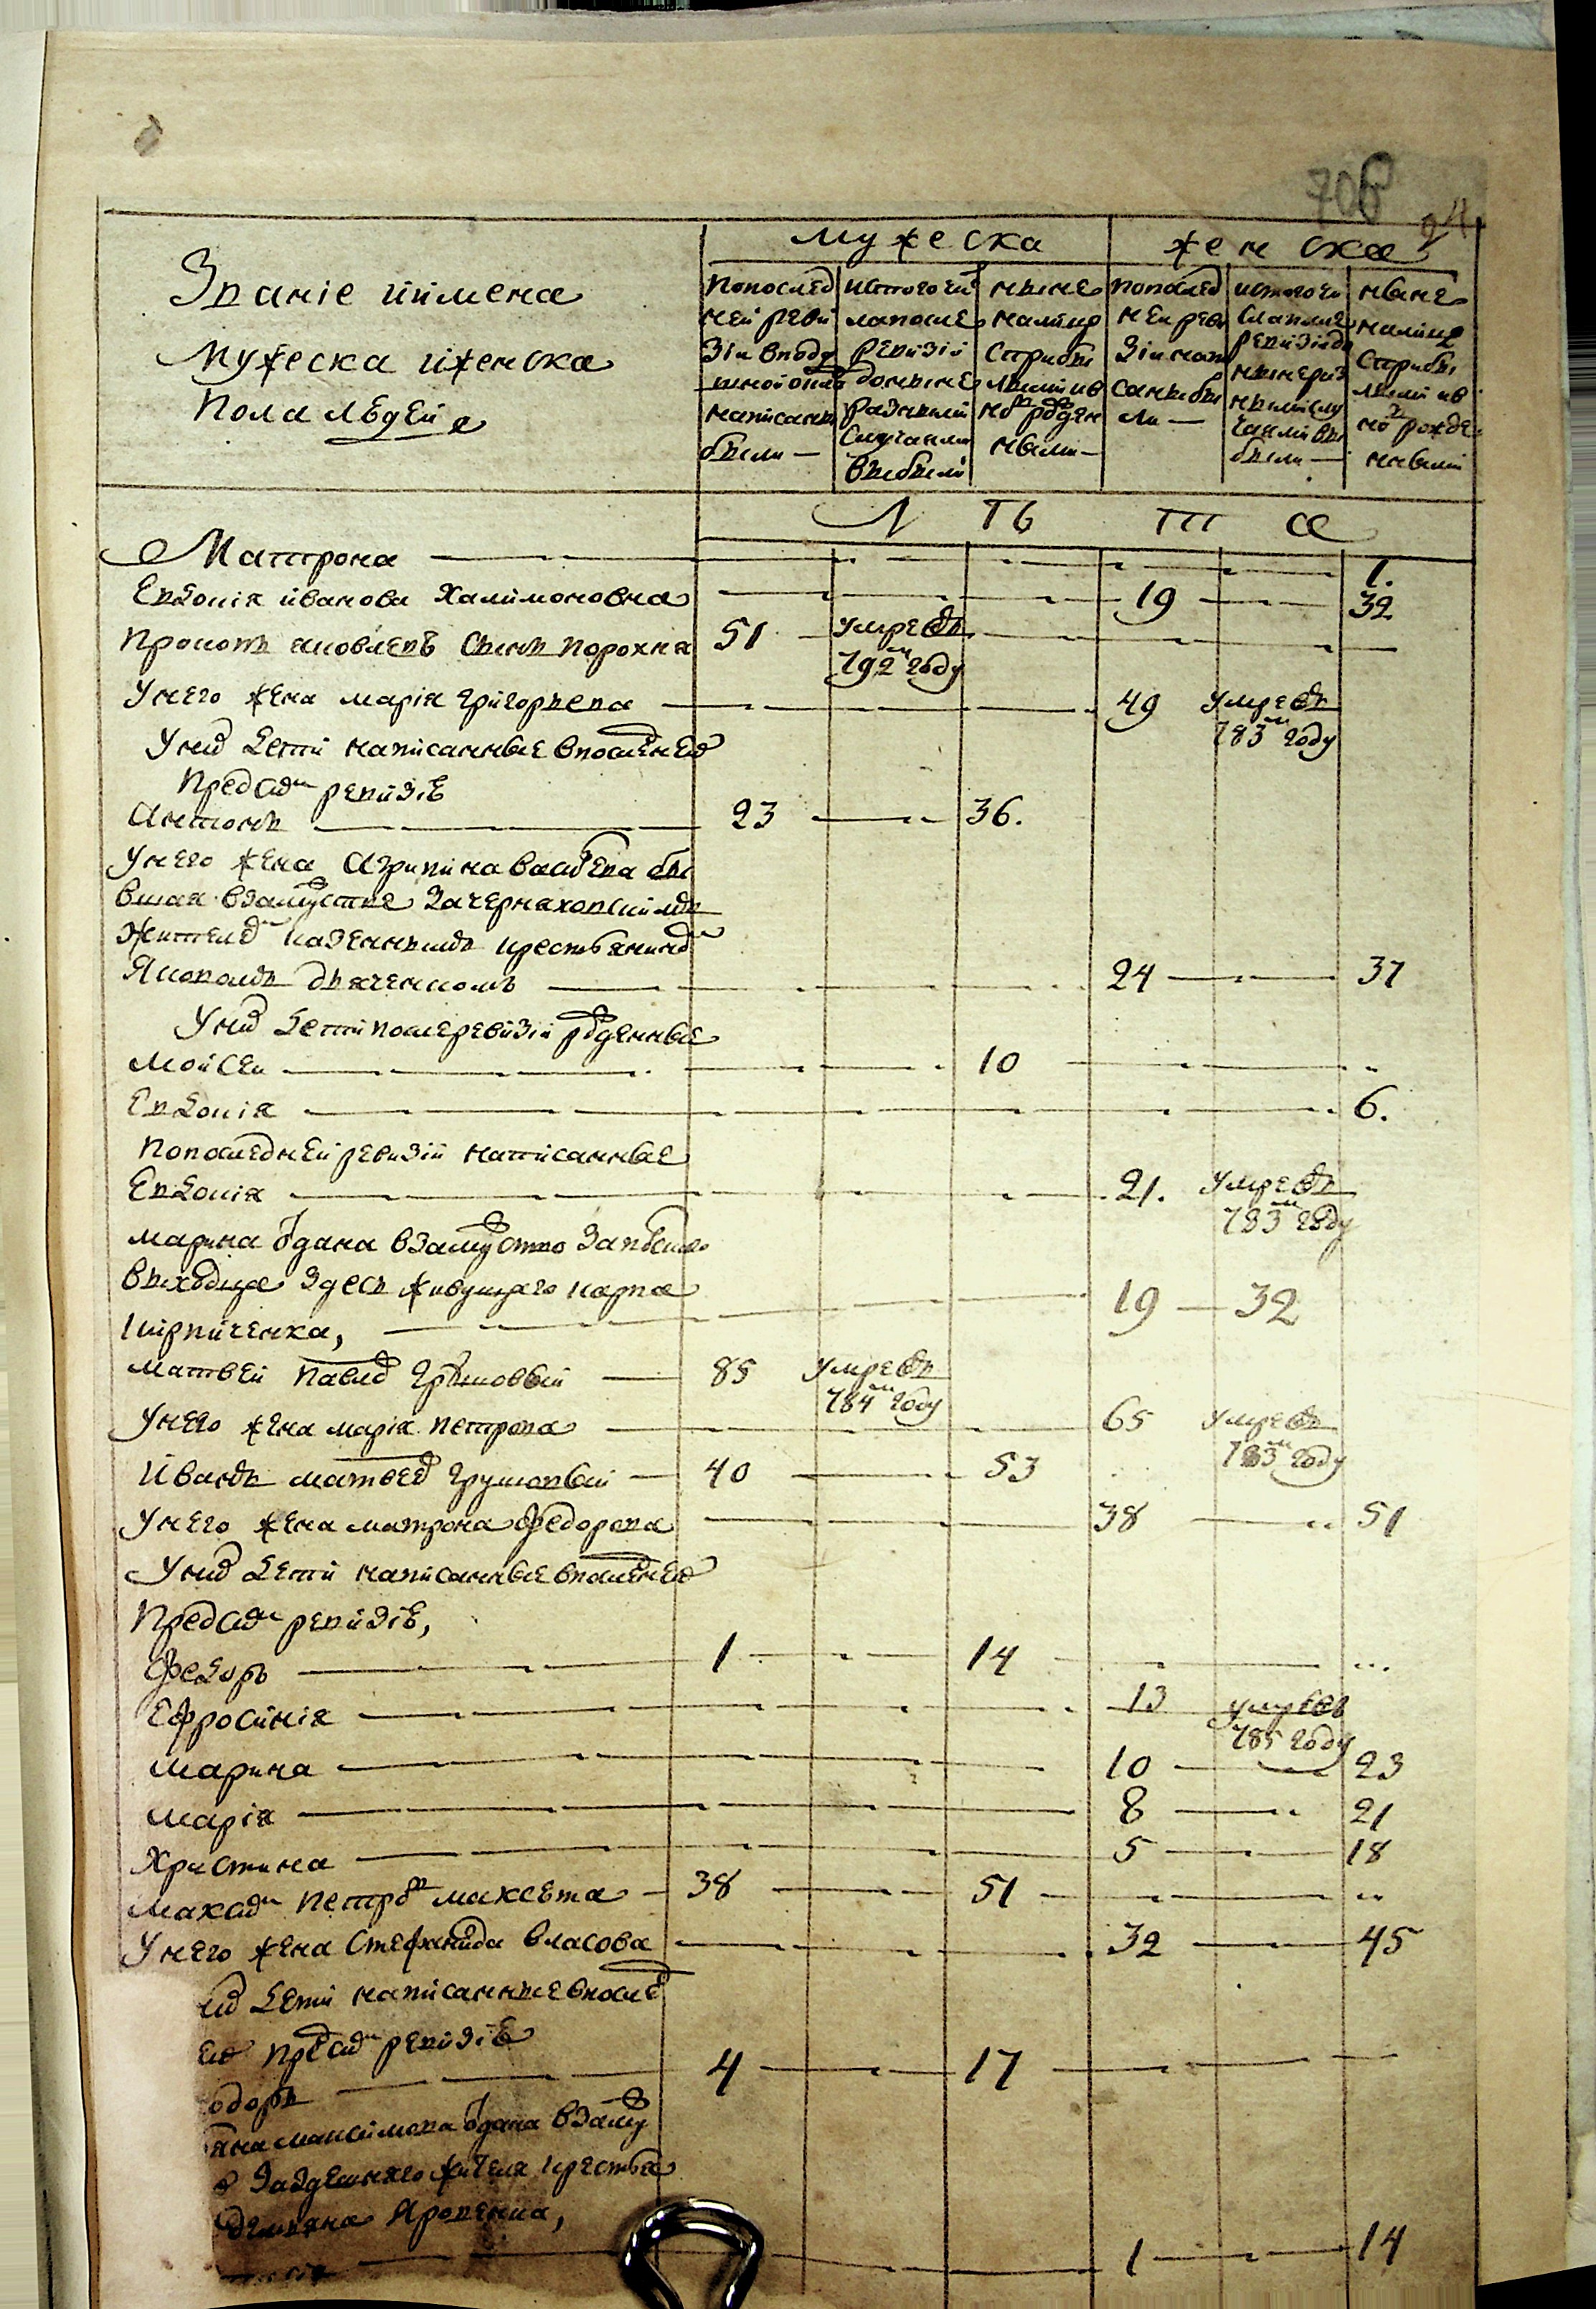 708
94
Званіе и имена
мужеска и женска
пола людей
мужеска
женска
попослед
ней реви
зіи вподу
написаны
были —
ревизіи
доныне
разными
случаями
выбыли
ныне
налицо
сприбы
лыми ив
новь рожден
ными —
попослед
ней реви
саны бы
ли —
были —
ныне
налицо
сприбы
лыми ив
новь рожде
нными
л ѣ т а
Матрона — 1.
Евдокія иванова Халимоновна — 19 — 32
Прокопъ яковлевъ сынъ порохня 51 — умре въ
792м году
Унего жена марія григорьева — 49 умре въ
783м году
Уних дети написанные впоследней
пред сим ревизіе
Антонъ — 23 — 36.
Унего жена Агрипина васильева бы
вшая взамужстве зачерняховским
жителем казенным крестьянином
Яковомъ дьяченкомъ — 24 — 37
Уних дети после ревизіи рожденные
Мойсей — 10
Евдокія — 6.
Попоследней ревизіи написанные
Евдокія — 21. умре въ
783м году
марина отдана взамужство за
выходца здесь живущаго карпа
кирпиченка, — 19 — 32
матвей павлов грушовый — 85 умре въ
784м году
Унего жена марія петрова — 65 умре въ
783м году
Иванъ матвеев грушовый — 40 — 53
Унего жена матрона федорова — 38 — 51
Уних дети написанные впоследней
пред сим ревизіе,
Федоръ — 1 — 14
Ефросинія — 13 умре въ
785 году
Марина — 10 — 23
Марія — 8 — 21
Христина — 5 — 18
Максим петров макеета — 38 — 51
Унего жена Стефанида власова — 32 — 45
их дети написанные впослед
ей пред сим ревизіе
одоръ — 4 — 17
яна максимова отдана взамуж
о заздешняго жителя крестья
демьяна Яровенка,
— 1 — 14